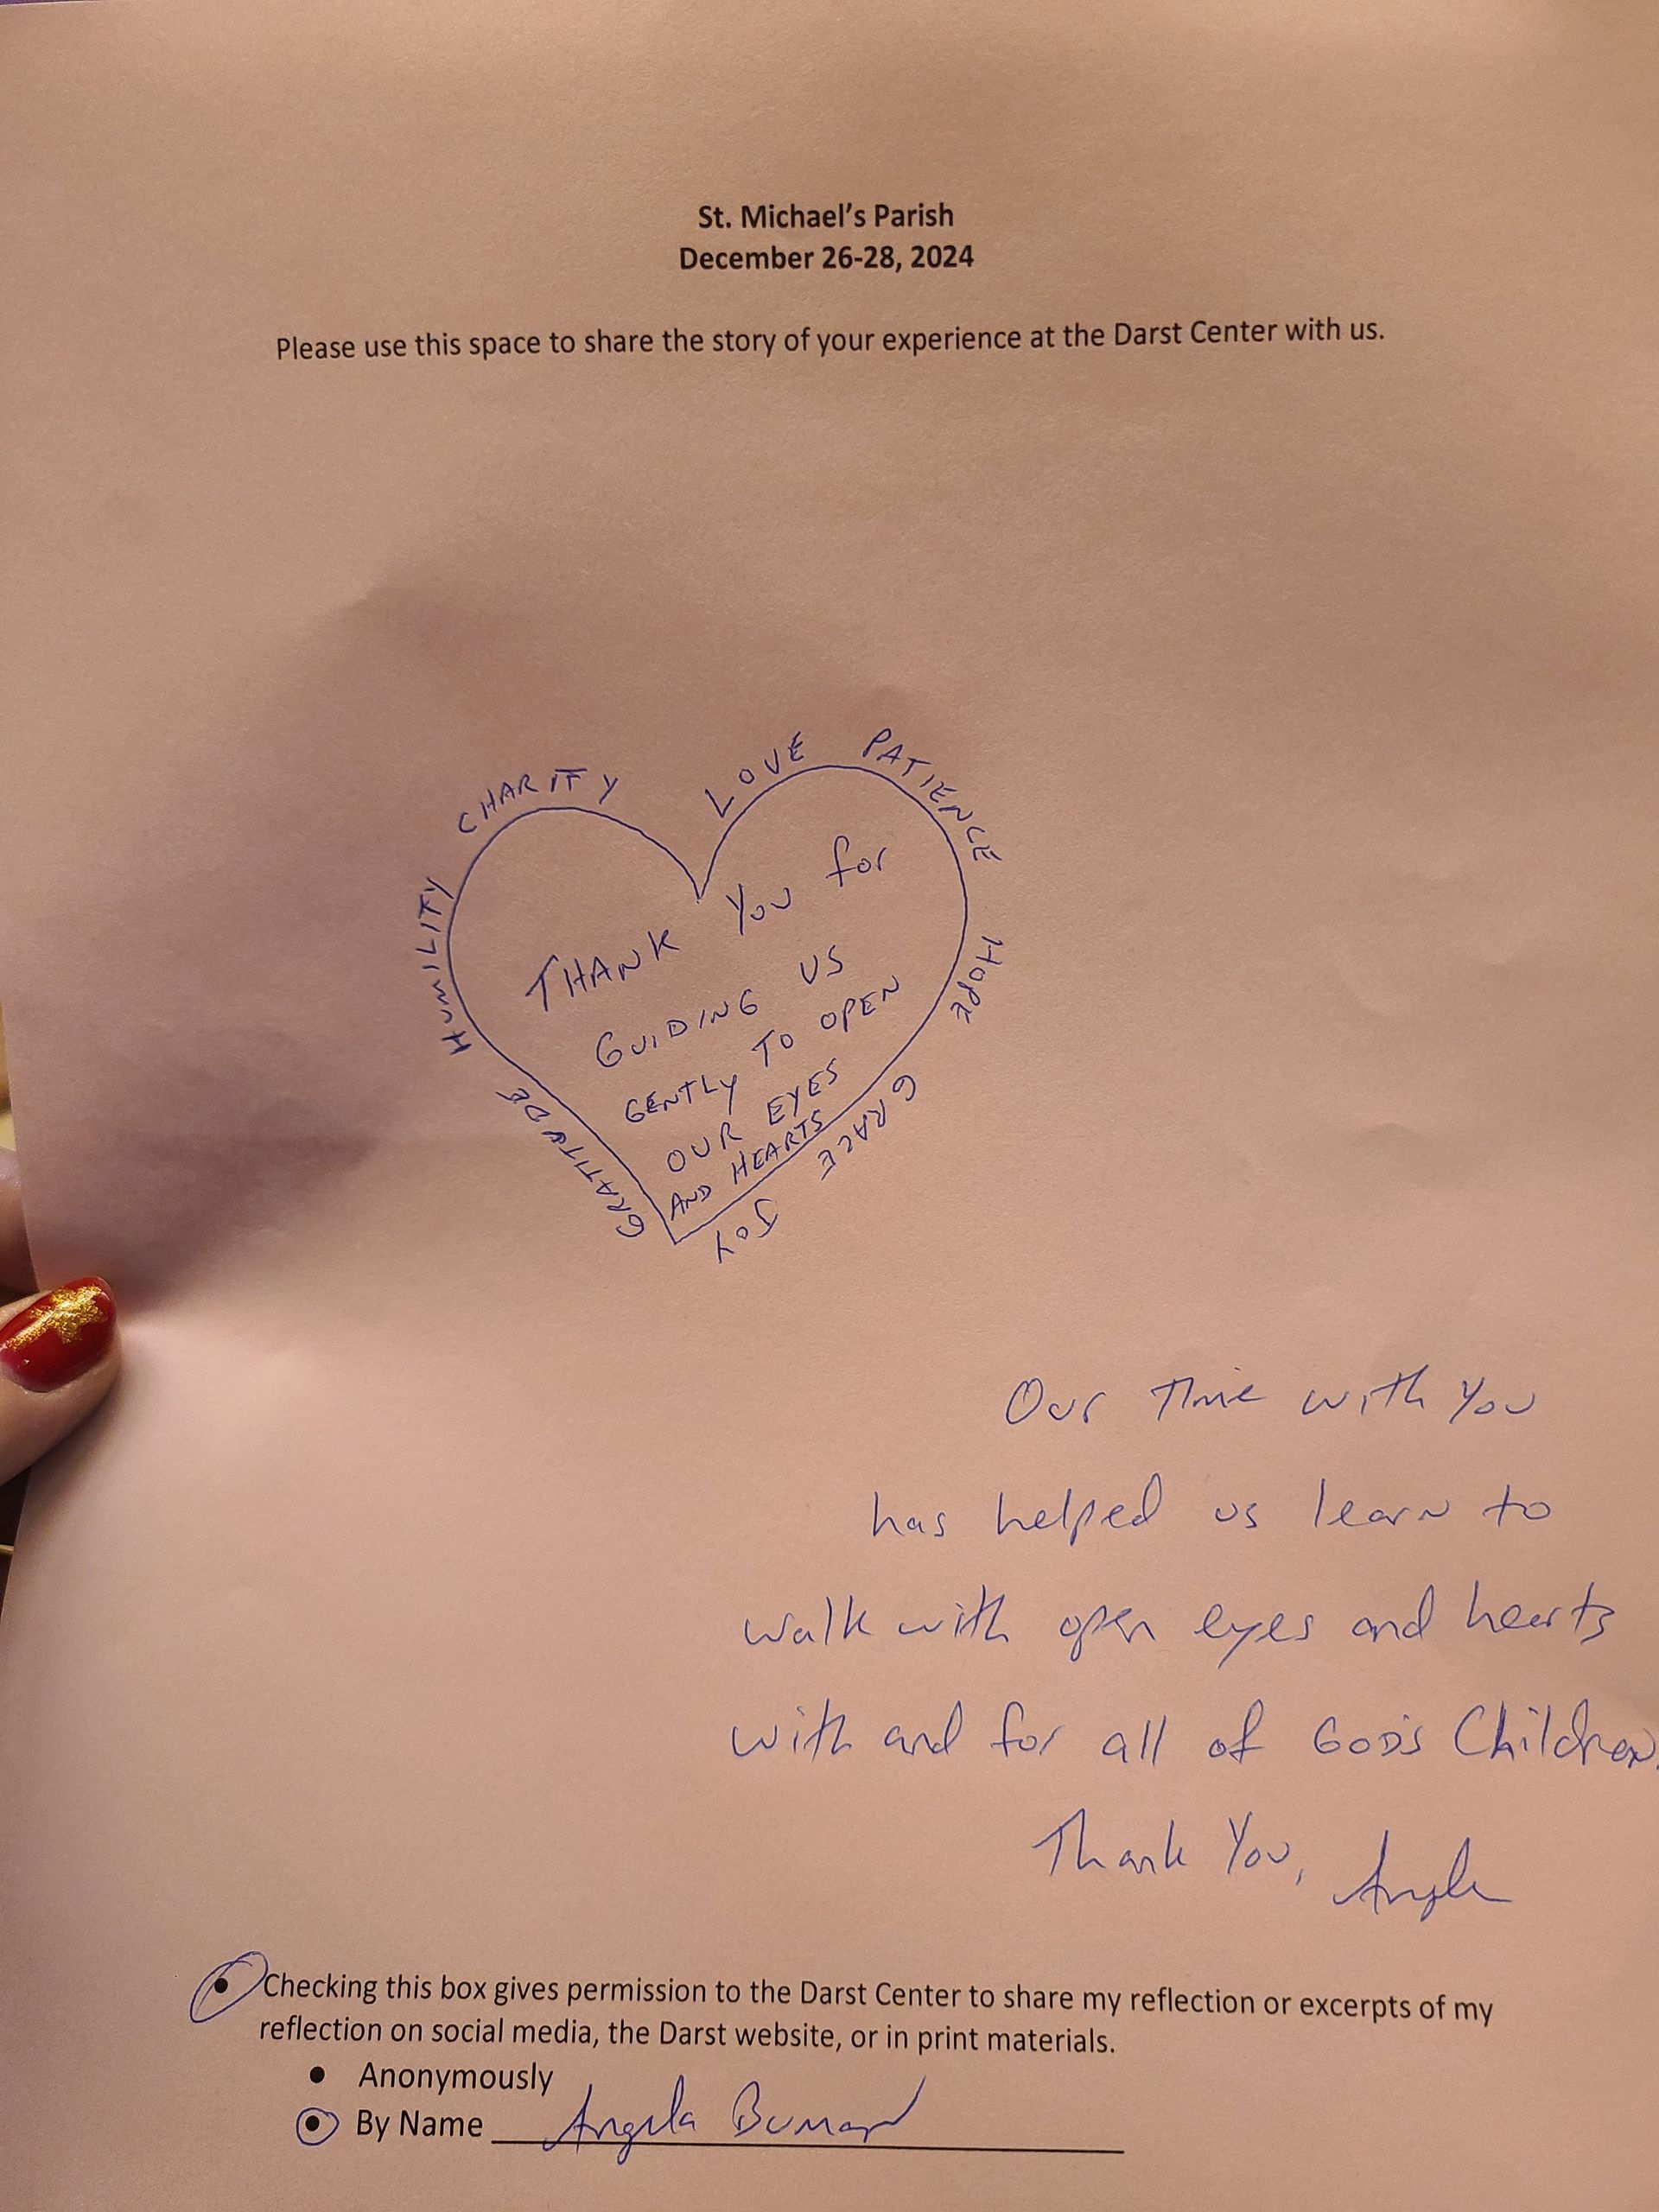 St. Michael's Parish
December 26-28, 2024
Please use this space to share the story of your experience at the Darst Center with us.
HUMILITY
CHARITY
LOVE
PATIENCE
HOPE
GRACE
JOY
GRATITUDE
THANK You for
GUIDING US
GENTLY TO OPEN
OUR EYES
AND HEARTS
Our Time with You
has helped us learn to
walk with open eyes and hearts
with and for all of GOD'S Children.
Thank You, Angela
Checking this box gives permission to the Darst Center to share my reflection or excerpts of my
reflection on social media, the Darst website, or in print materials.
Anonymously
By Name Angela